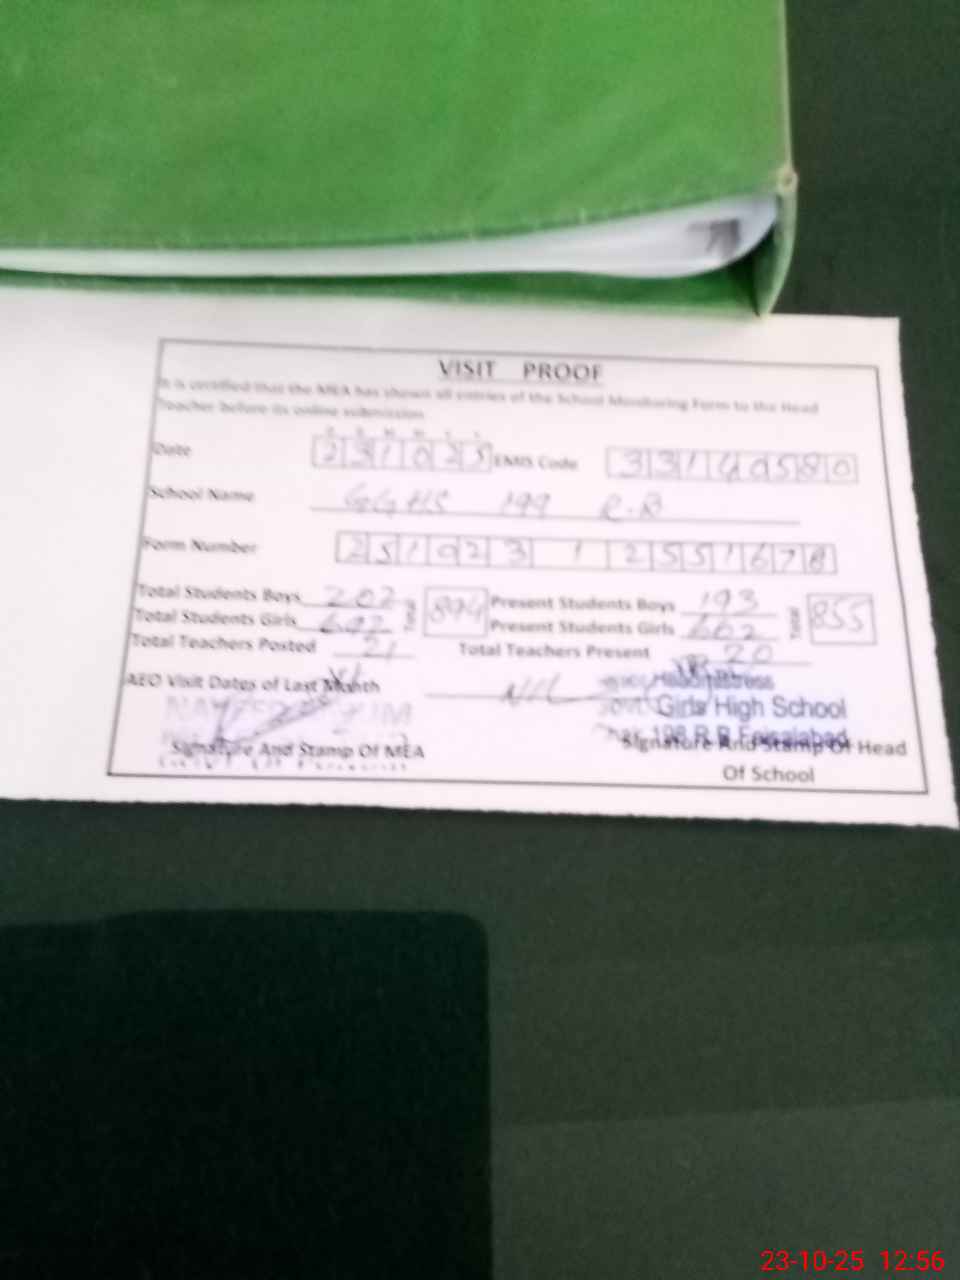 VISIT PROOF
It is certified that the MEA has shown all entries of the School Monitoring Form to the Head
Teacher before its online submission
D D M M Y Y
Date 231025 EMIS Code 33140580
School Name GGHS 199 R.B
Form Number 251023 1 2551678
Total Students Boys 202 Total 894 Present Students Boys 193 Total 855
Total Students Girls 692 Present Students Girls 662
Total Teachers Posted 21 Total Teachers Present 20
AEO Visit Dates of Last Month NIL
Headmistress
Govt. Girls High School
R.B Faisalabad
Signature And Stamp Of MEA Signature And Stamp Of Head
Of School
23-10-25 12:56